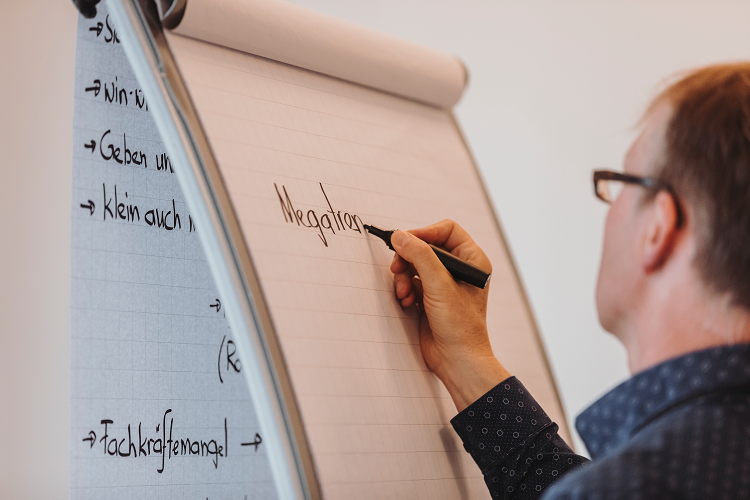 → win-wi
→ Geben un
→ klein auch
→
(Ro
→ Fachkräftemangel →
Megatren